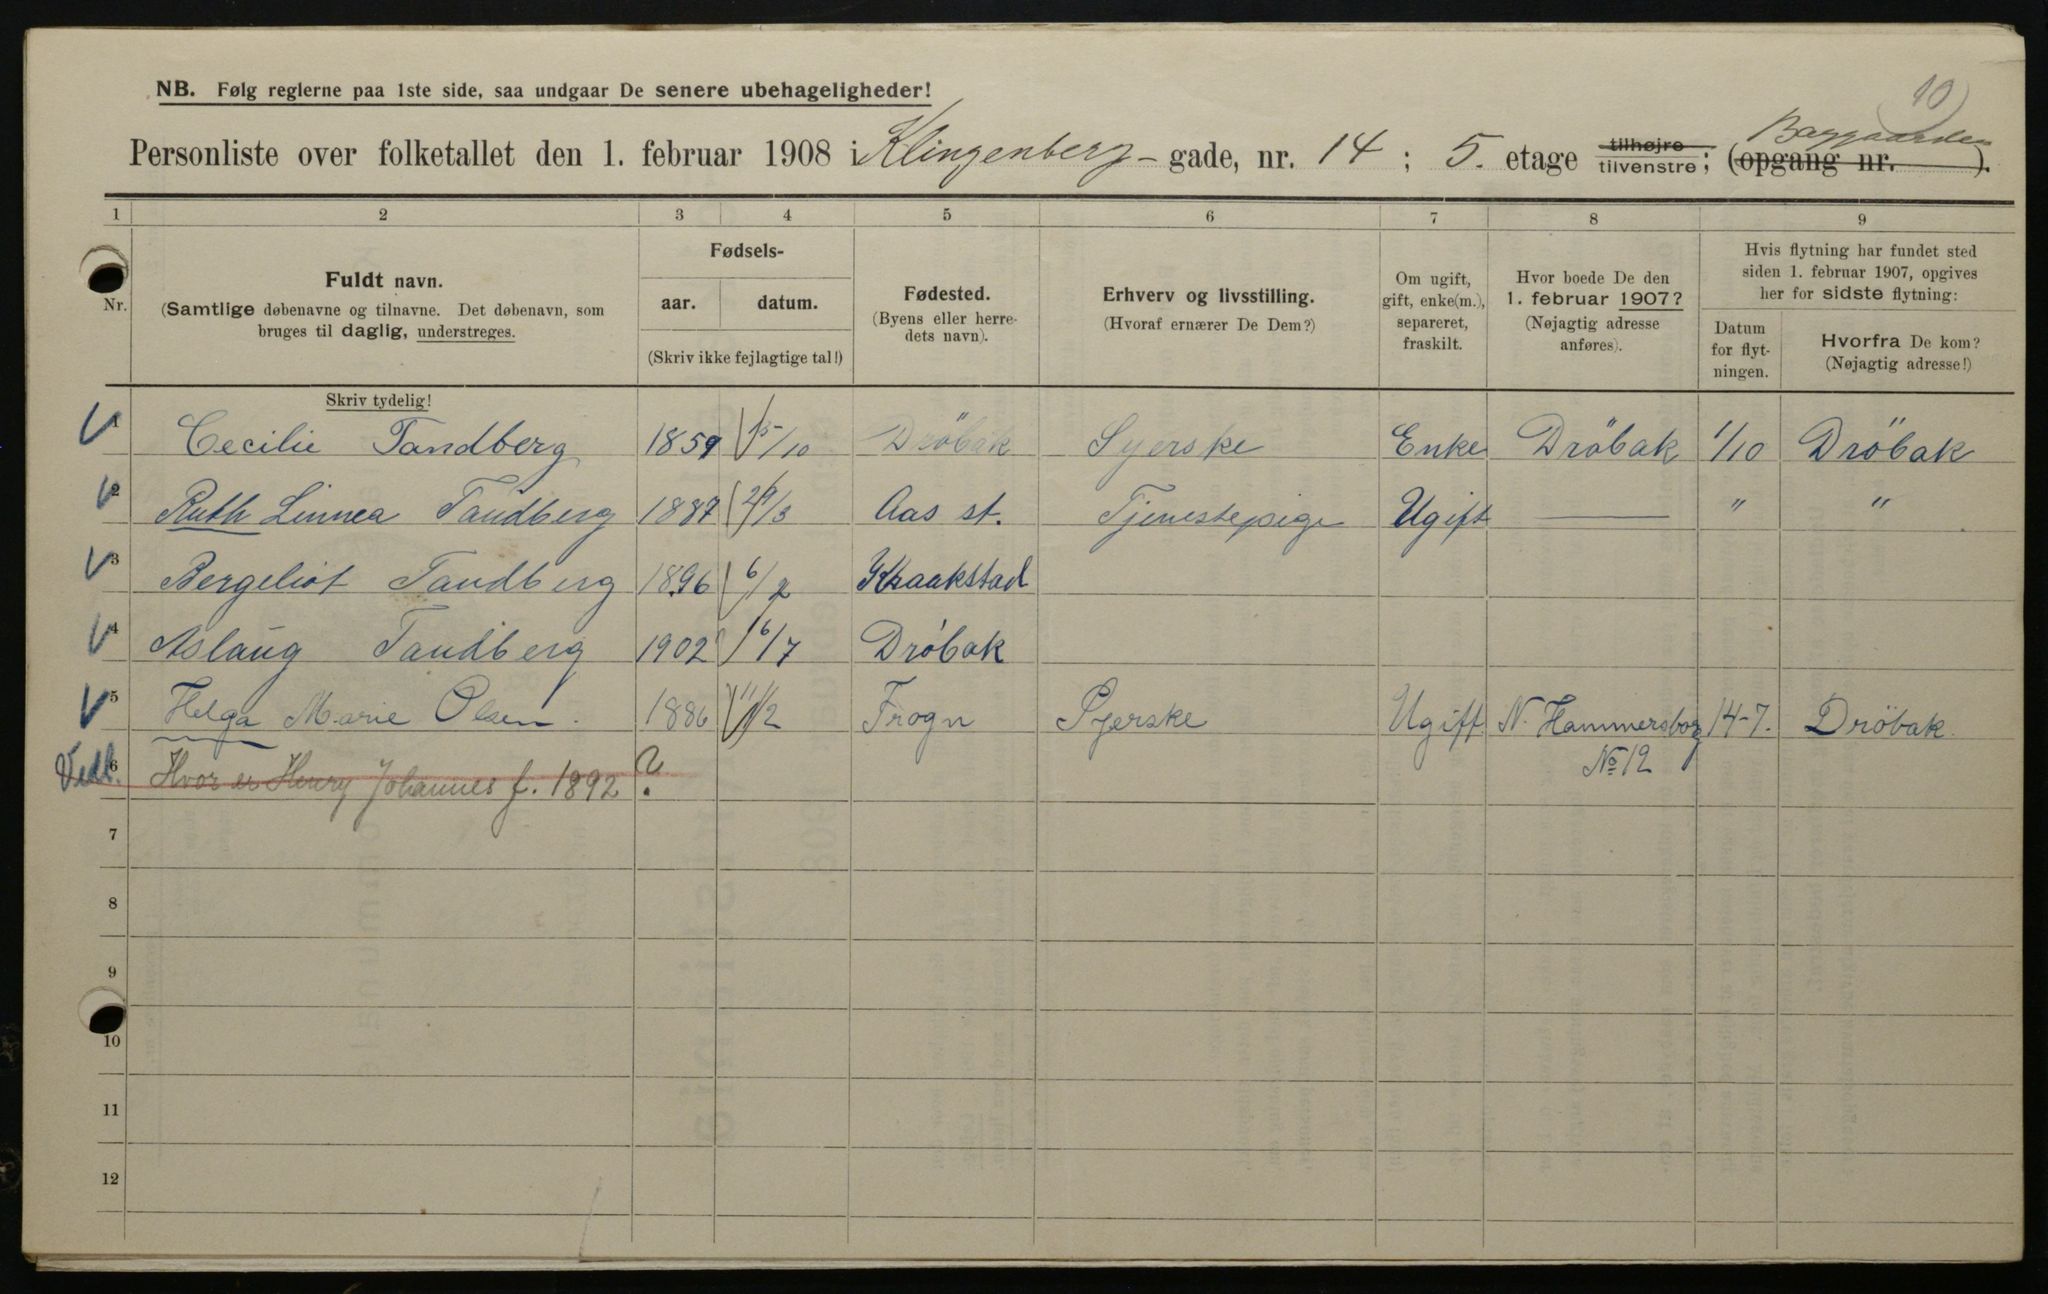 10
NB. Følg reglerne paa 1ste side, saa undgaar De senere ubehageligheder!
Baggaarden
Personliste over folketallet den 1. februar 1908 i Klingenberg-gade, nr. 14; 5. etage tilhøjre tilvenstre; (opgang nr. ).
1 2 3 4 5 6 7 8 9
Nr.
Fuldt navn.
(Samtlige døbenavne og tilnavne. Det døbenavn, som
bruges til daglig, understreges.
Fødsels-
aar. datum.
(Skriv ikke fejlagtige tal!)
Fødested.
(Byens eller herre-
dets navn).
Erhverv og livsstilling.
(Hvoraf ernærer De Dem?)
Om ugift,
gift, enke(m.),
separeret,
fraskilt.
Hvor boede De den
1. februar 1907?
(Nøjagtig adresse
anføres).
Hvis flytning har fundet sted
siden 1. februar 1907, opgives
her for sidste flytning:
Datum
for flyt-
ningen.
Hvorfra De kom?
(Nøjagtig adresse!)
Skriv tydelig!
1 Cecilie Tandberg 1859 15/10 Dröbak Syerske Enke Dröbak 1/10 Dröbak
2 Ruth Linnea Tandberg 1887 29/3 Aas st. Tjenestepige Ugift — " "
3 Bergeliot Tandberg 1896 6/2 Kraakstad
4 Aslaug Tandberg 1902 16/7 Dröbak
5 Helga Marie Olsen. 1886 11/2 Frogn Syerske Ugift N. Hammersborg 14-7. Dröbak.
No 12
Vedl. 6 Hvor er Henry Johannes f. 1892?
7
8
9
10
11
12